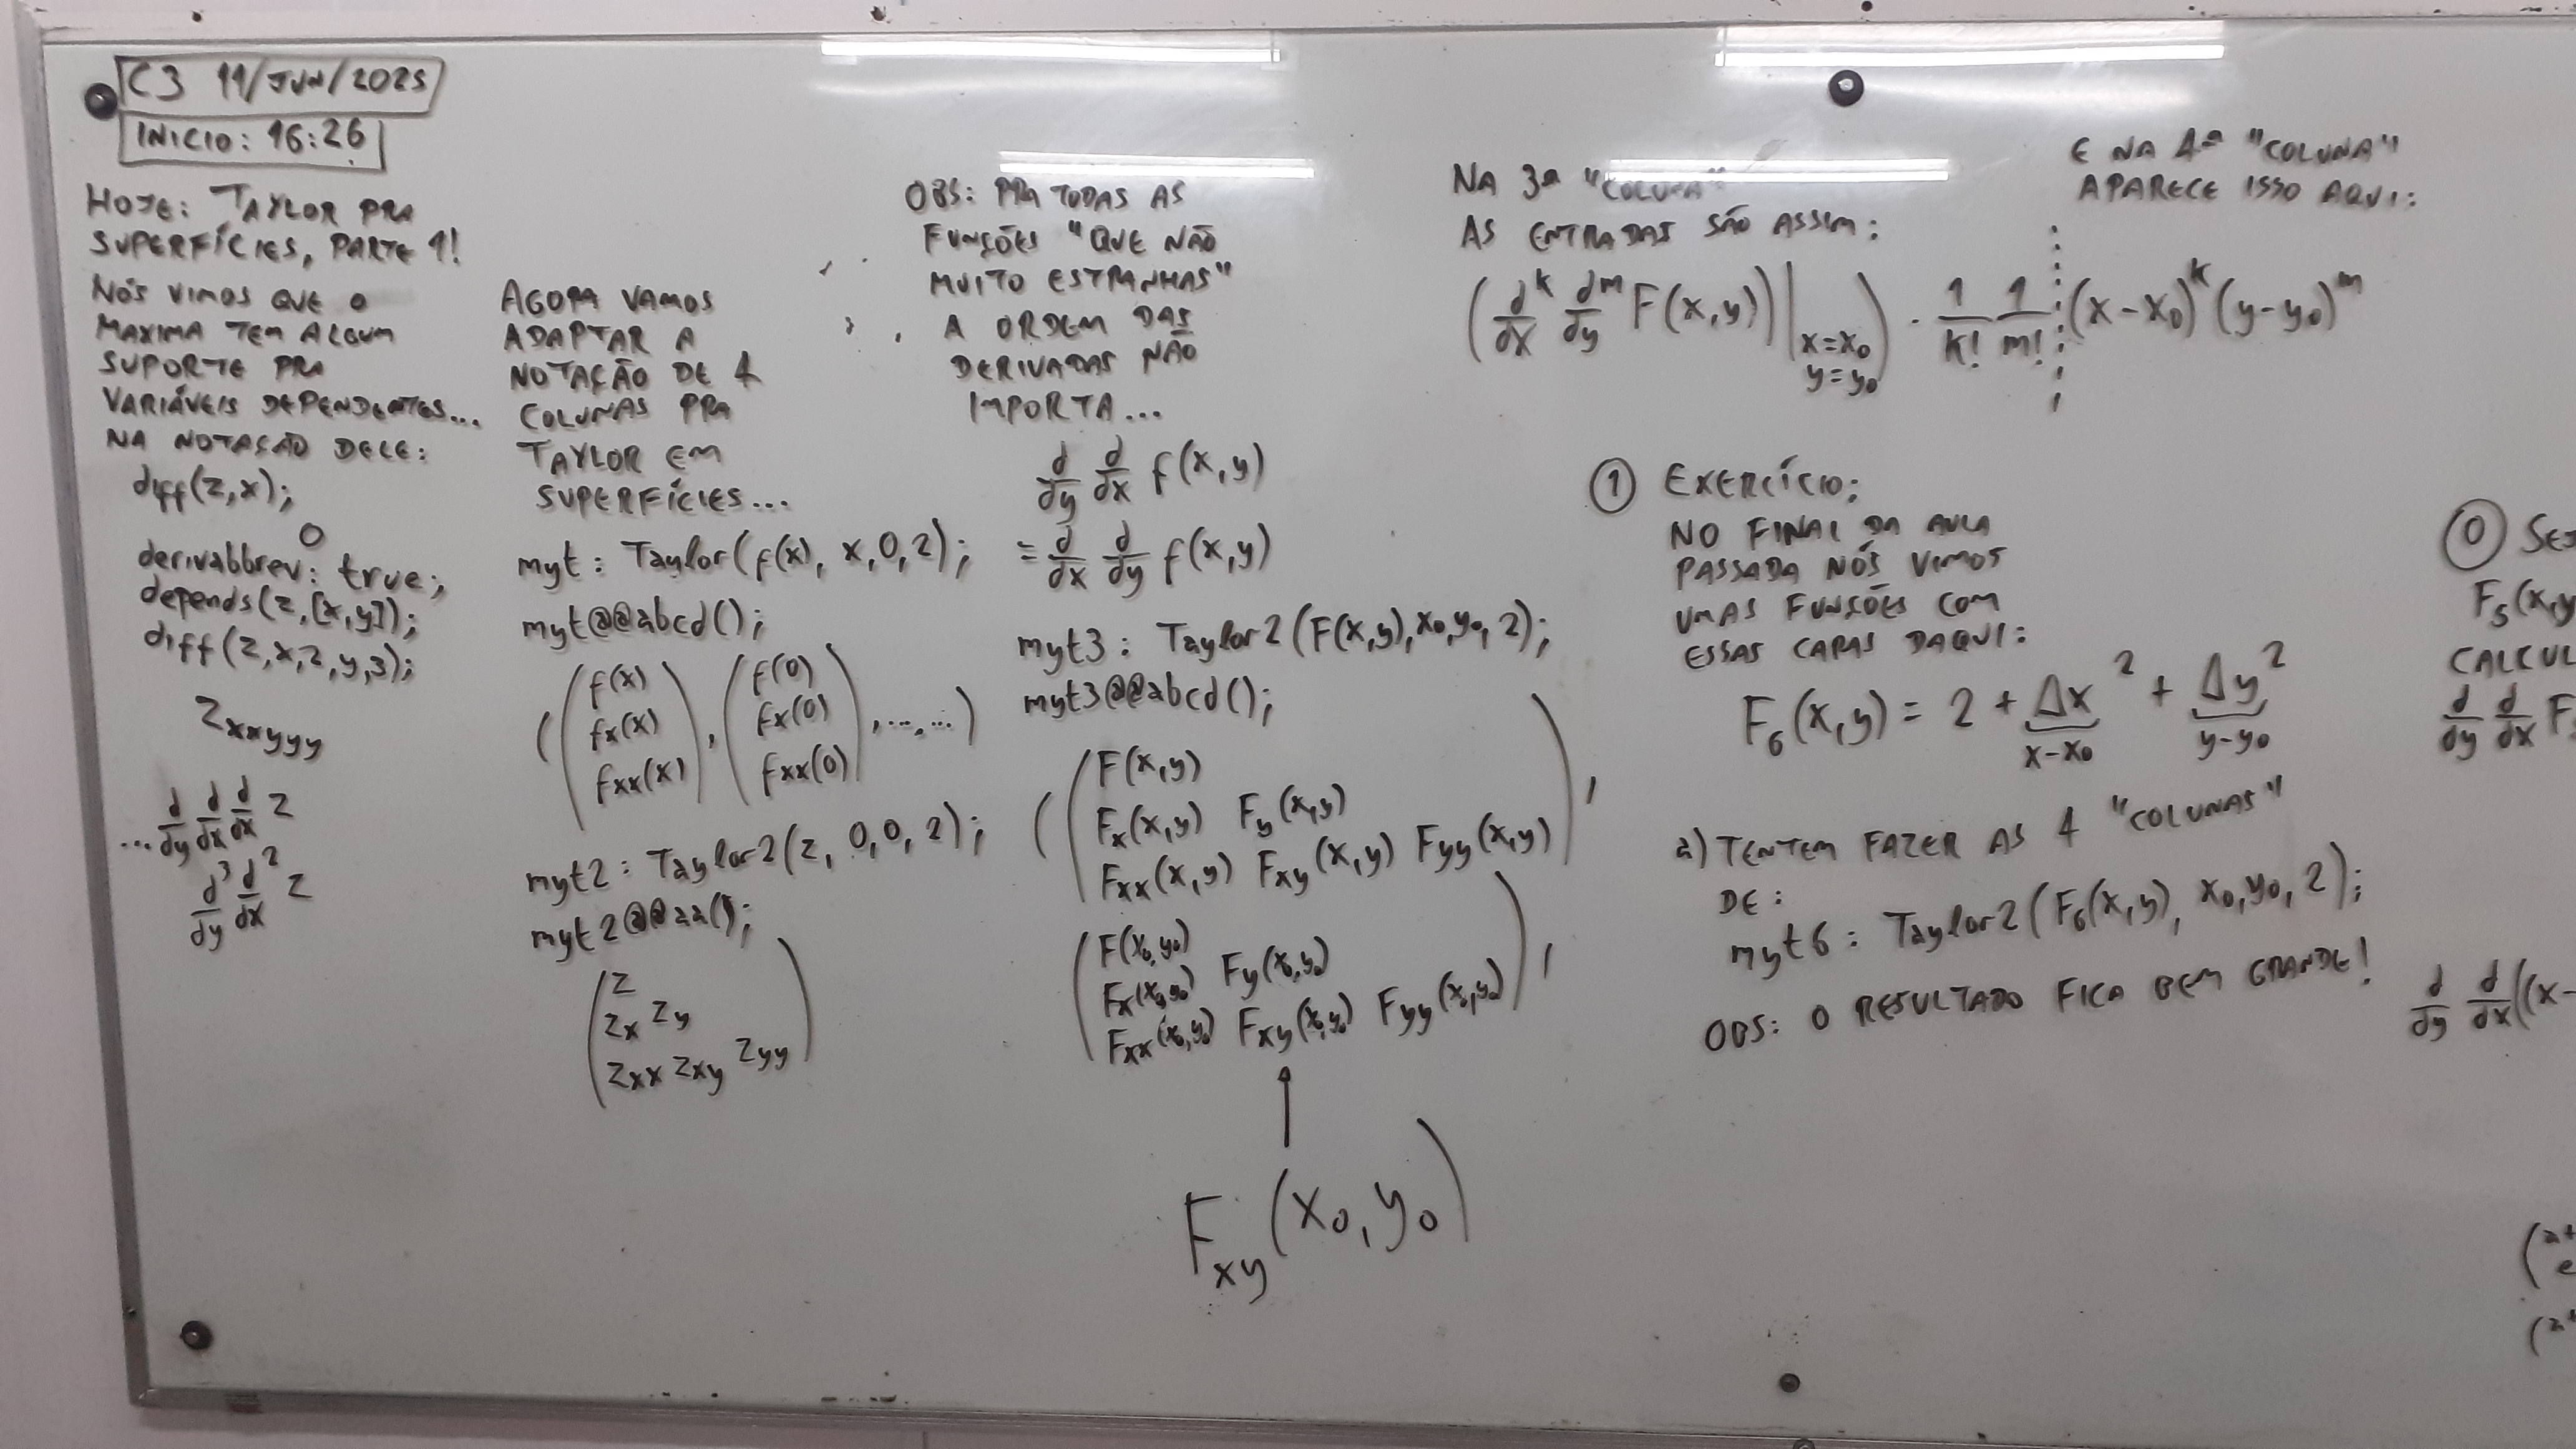 C3 11/JUN/2025
INICIO: 16:26
HOJE: TAYLOR PRA
SUPERFÍCIES, PARTE 1!
NÓS VIMOS QUE O
MAXIMA TEM ALGUM
SUPORTE PRA
VARIÁVEIS DEPENDENTES...
NA NOTAÇÃO DELE:
diff(z,x);
0
derivabbrev: true;
depends(z,[x,y]);
diff(z,x,2,y,3);
z_xxyyy
... d/dy d/dx d/dx z
d³/dy d²/dx z
AGORA VAMOS
ADAPTAR A
NOTAÇÃO DE 4
COLUNAS PRA
TAYLOR EM
SUPERFÍCIES...
myt: Taylor(f(x), x,0,2);
myt@@abcd();
( ( f(x) ), ( f(0) ), ..., ... )
fx(x) fx(0)
fxx(x) fxx(0)
myt2: Taylor2(z, 0,0,2);
myt2@@aa();
( z
zx zy
zxx zxy zyy )
OBS: PRA TODAS AS
FUNÇÕES "QUE NÃO
MUITO ESTRANHAS"
A ORDEM DAS
DERIVADAS NÃO
IMPORTA...
d/dy d/dx f(x,y)
= d/dx d/dy f(x,y)
myt3: Taylor2(F(x,y),x₀,y₀,2);
myt3@@abcd();
( ( F(x,y)
Fx(x,y) Fy(x,y)
Fxx(x,y) Fxy(x,y) Fyy(x,y) ),
( F(x₀,y₀)
Fx(x₀,y₀) Fy(x₀,y₀)
Fxx(x₀,y₀) Fxy(x₀,y₀) Fyy(x₀,y₀) ),
↑
F_xy(x₀,y₀)
NA 3ª "COLUNA"
AS ENTRADAS SÃO ASSIM:
E NA 4ª "COLUNA"
APARECE ISSO AQUI:
(d^k/dx d^m/dy F(x,y))|x=x₀ y=y₀) · 1/k! 1/m! (x-x₀)^k (y-y₀)^m
① EXERCÍCIO:
NO FINAL DA AULA
PASSADA NÓS VIMOS
UMAS FUNÇÕES COM
ESSAS CARAS DAQUI:
F₆(x,y) = 2 + Δx² + Δy²
x-x₀ y-y₀
a) TENTEM FAZER AS 4 "COLUNAS"
DE:
myt6: Taylor2(F₆(x,y), x₀,y₀,2);
OBS: O RESULTADO FICA BEM GRANDE!
⓪ SEJ
F₅(x,y
CALCUL
d/dy d/dx F₅
d/dy d/dx((x-